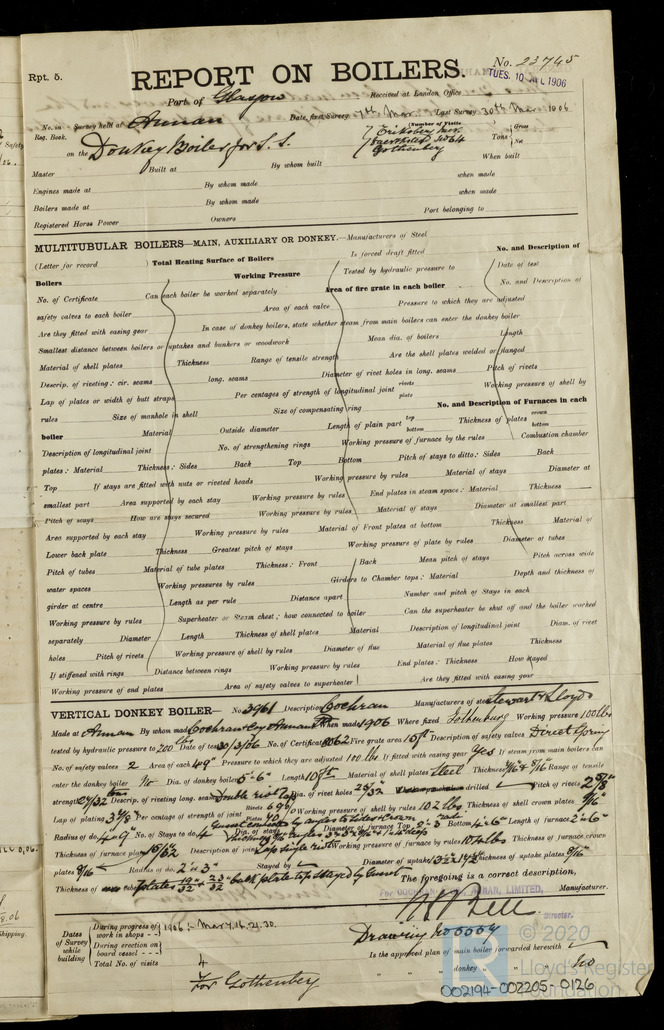 Rpt. 5.
No. 23745
REPORT ON BOILERS.
TUES. 10 APL 1906
Port of Glasgow Received at London Office
No. in Survey held at Annan Date, first Survey 7th Mar. Last Survey 30th Mar 1906
Reg. Book.
(Number of Visits
on the Donkey Boiler for S. S. Eriksberg Mek. Tons Gross Net
No 64
Gothenburg
Master Built at By whom built When built
Engines made at By whom made when made
Boilers made at By whom made when made
Registered Horse Power Owners Port belonging to
MULTITUBULAR BOILERS—MAIN, AUXILIARY OR DONKEY.—Manufacturers of Steel
(Letter for record Total Heating Surface of Boilers Is forced draft fitted No. and Description of
Boilers Working Pressure Tested by hydraulic pressure to Date of test
No. of Certificate Can each boiler be worked separately Area of fire grate in each boiler No. and Description of
safety valves to each boiler Area of each valve Pressure to which they are adjusted
Are they fitted with easing gear In case of donkey boilers, state whether steam from main boilers can enter the donkey boiler
Smallest distance between boilers or uptakes and bunkers or woodwork Mean dia. of boilers Length
Material of shell plates Thickness Range of tensile strength Are the shell plates welded or flanged
Descrip. of riveting: cir. seams long. seams Diameter of rivet holes in long. seams Pitch of rivets
Lap of plates or width of butt straps Per centages of strength of longitudinal joint rivets plate Working pressure of shell by
rules Size of manhole in shell Size of compensating ring No. and Description of Furnaces in each
boiler Material Outside diameter Length of plain part top bottom Thickness of plates crown bottom
Description of longitudinal joint No. of strengthening rings Working pressure of furnace by the rules Combustion chamber
plates: Material Thickness: Sides Back Top Bottom Pitch of stays to ditto: Sides Back
Top If stays are fitted with nuts or riveted heads Working pressure by rules Material of stays Diameter at
smallest part Area supported by each stay Working pressure by rules End plates in steam space: Material Thickness
Pitch of stays How are stays secured Working pressure by rules Material of stays Diameter at smallest part
Area supported by each stay Working pressure by rules Material of Front plates at bottom Thickness Material of
Lower back plate Thickness Greatest pitch of stays Working pressure of plate by rules Diameter of tubes
Pitch of tubes Material of tube plates Thickness: Front Back Mean pitch of stays Pitch across wide
water spaces Working pressures by rules Girders to Chamber tops: Material Depth and thickness of
girder at centre Length as per rule Distance apart Number and pitch of Stays in each
Working pressure by rules Superheater or Steam chest; how connected to boiler Can the superheater be shut off and the boiler worked
separately Diameter Length Thickness of shell plates Material Description of longitudinal joint Diam. of rivet
holes Pitch of rivets Working pressure of shell by rules Diameter of flue Material of flue plates Thickness
If stiffened with rings Distance between rings Working pressure by rules End plates: Thickness How stayed
Working pressure of end plates Area of safety valves to superheater Are they fitted with easing gear
VERTICAL DONKEY BOILER— No. 3961 Description Cochran Manufacturers of steel Stewart & Lloyds
Made at Annan By whom made Cochran & Coy Annan Ltd When made 1906 Where fixed Gothenburg Working pressure 100 lbs
tested by hydraulic pressure to 200 lbs Date of test 30/3/06 No. of Certificate 8062 Fire grate area 15 ft Description of safety valves Direct Spring
No. of safety valves 2 Area of each 4.9" Pressure to which they are adjusted 100 lbs If fitted with easing gear Yes If steam from main boilers can
enter the donkey boiler No Dia. of donkey boiler 5'-6" Length 10 ft Material of shell plates Steel Thickness 7/16" & 8/16" Range of tensile
strength 27/32 tons Descrip. of riveting long. seams Double rivet Lap Dia. of rivet holes 29/32 drilled Pitch of rivets 2 5/8"
Lap of plating 3 7/8 Per centage of strength of joint Rivets 69 Plates 70 Working pressure of shell by rules 102 lbs Thickness of shell crown plates 9/16"
Radius of do. 4'-9" No. of Stays to do. 4 Dia. of stays Diameter of furnace Top Bottom 4'-6" Length of furnace 2'-6"
Thickness of furnace plates Description of joint Lap single rivet Working pressure of furnace by rules 104 lbs Thickness of furnace crown
plates 9/16" Radius of do. 2'-3" Stayed by Diameter of uptake Thickness of uptake plates 9/16"
Thickness of tube plates 19/32 & 23/32 back plate top stayed by Gusset The foregoing is a correct description,
ANNAN, LIMITED,
Manufacturer.
Director.
Dates of Survey while building
During progress of work in shops - - 1906:- Mar 7. 16. 21. 30.
During erection on board vessel - - -
Total No. of visits 4
Drawing No 5009
Is the approved plan of main boiler forwarded herewith
" " " donkey " " " No
For Gothenburg
© 2020
Lloyd's Register
Foundation
002194-002205-0126